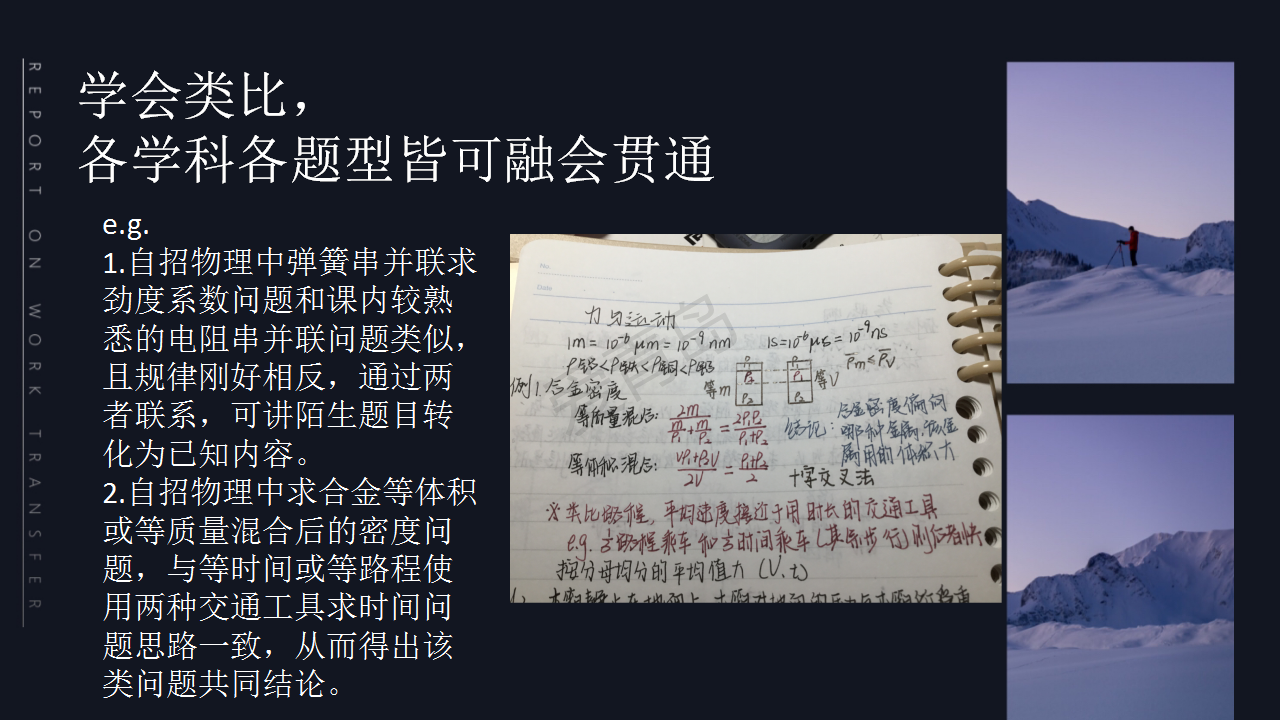 REPORT ON WORK TRANSFER
学会类比，
各学科各题型皆可融会贯通
e.g.
1.自招物理中弹簧串并联求
劲度系数问题和课内较熟
悉的电阻串并联问题类似，
且规律刚好相反，通过两
者联系，可讲陌生题目转
化为已知内容。
2.自招物理中求合金等体积
或等质量混合后的密度问
题，与等时间或等路程使
用两种交通工具求时间问
题思路一致，从而得出该
类问题共同结论。
No.
Date
力与运动
1m = 10⁻⁶ μm = 10⁻⁹ nm 1s = 10⁻⁶ μs = 10⁻⁹ ns
ρ铝<ρ铁<ρ铜<ρ铅 ρ̅m≤ρ̅V
例1.合金密度 等m ρ₁ ρ₂ ρ₁ ρ₂ 等V
等质量混合: 2m/(m/ρ₁+m/ρ₂) = 2ρ₁ρ₂/(ρ₁+ρ₂)
结论: 合金密度偏向
哪种金属,该金
属用的体积大
等体积混合: (Vρ₁+ρ₂V)/2V = (ρ₁+ρ₂)/2 十字交叉法
※类比路程，平均速度接近于用时长的交通工具
e.g. ½路程乘车和½时间乘车(其余步行)则后者快
按分母均分的平均值大 (V、t)